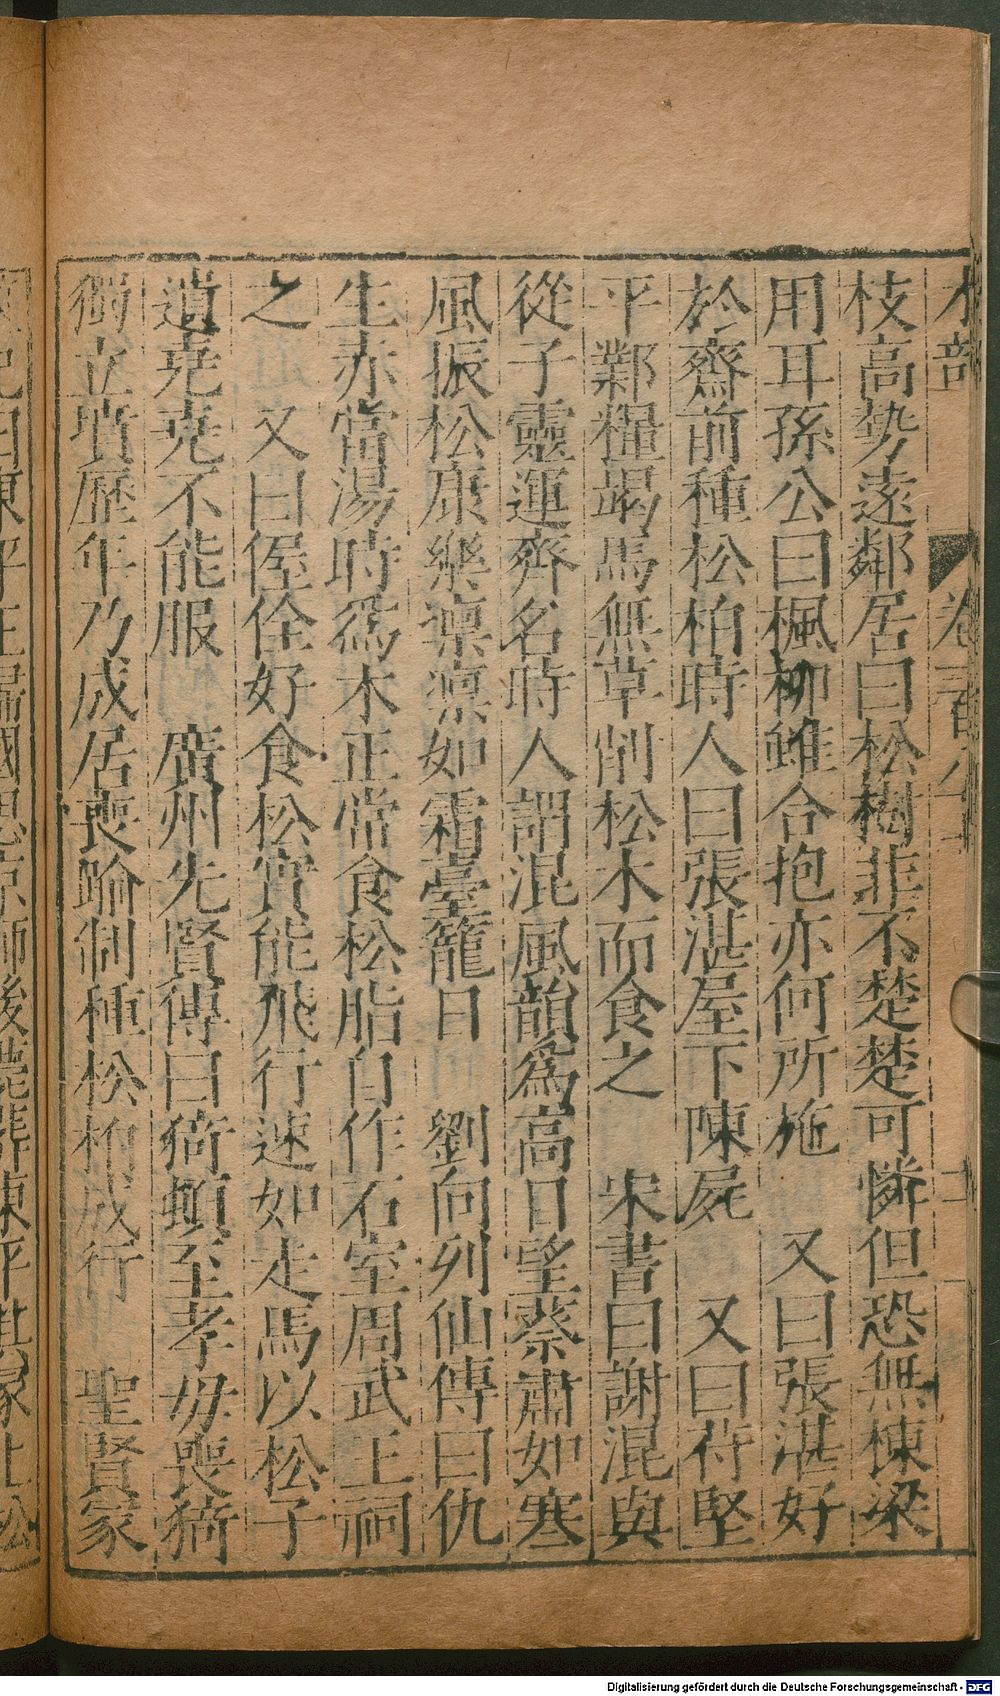 木部 卷二百八十二
枝高勢遠鄰居曰松樹非不楚楚可憐但恐無棟梁
用耳孫公曰楓柳雖合抱亦何所施 又曰張湛好
於齋前種松柏時人曰張湛屋下陳屍 又曰苻堅
平鄴糧竭馬無草削松木而食之 宋書曰謝混與
從子靈運齊名時人謂混風韻爲高日望蔡肅如寒
風振松康樂凛凛如霜臺籠日 劉向列仙傳曰仇
生赤當湯時爲木正常食松脂自作石室周武王祠
之 又曰偓佺好食松實能飛行速如走馬以松子
遺堯堯不能服 廣州先賢傳曰猗頓至孝母喪猗
獨立墳歷年乃成居喪踰制種松柏成行 聖賢冢
Digitalisierung gefördert durch die Deutsche Forschungsgemeinschaft - DFG